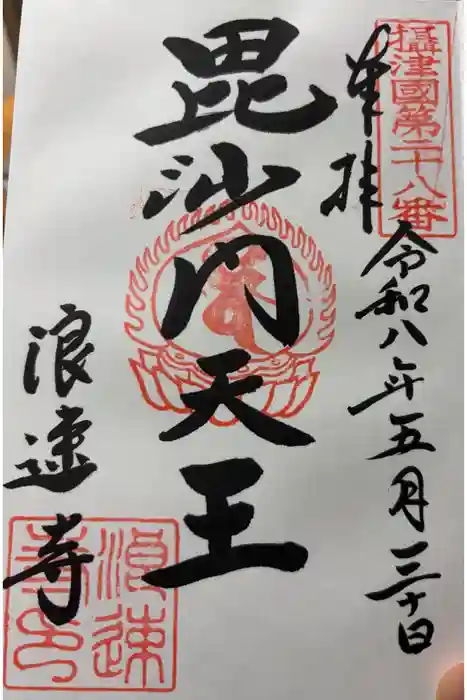 攝津國第二十八番
奉拝
令和八年五月三十日
毘沙門天王
浪速寺
浪速
寺印